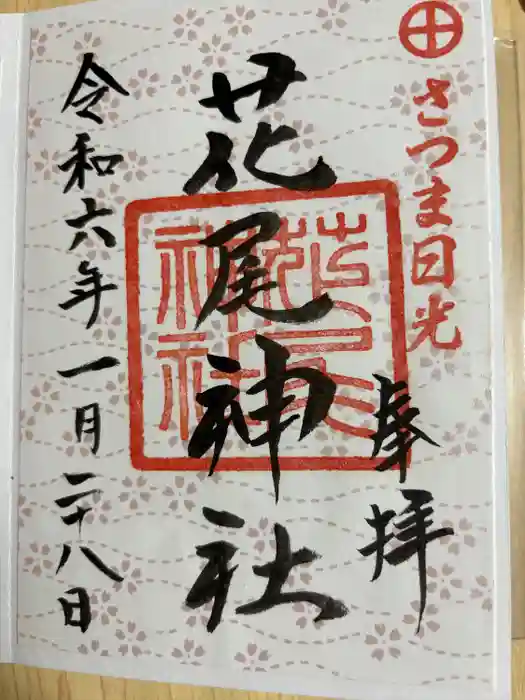 さつま日光
奉拝
花尾神社
令和六年一月二十八日